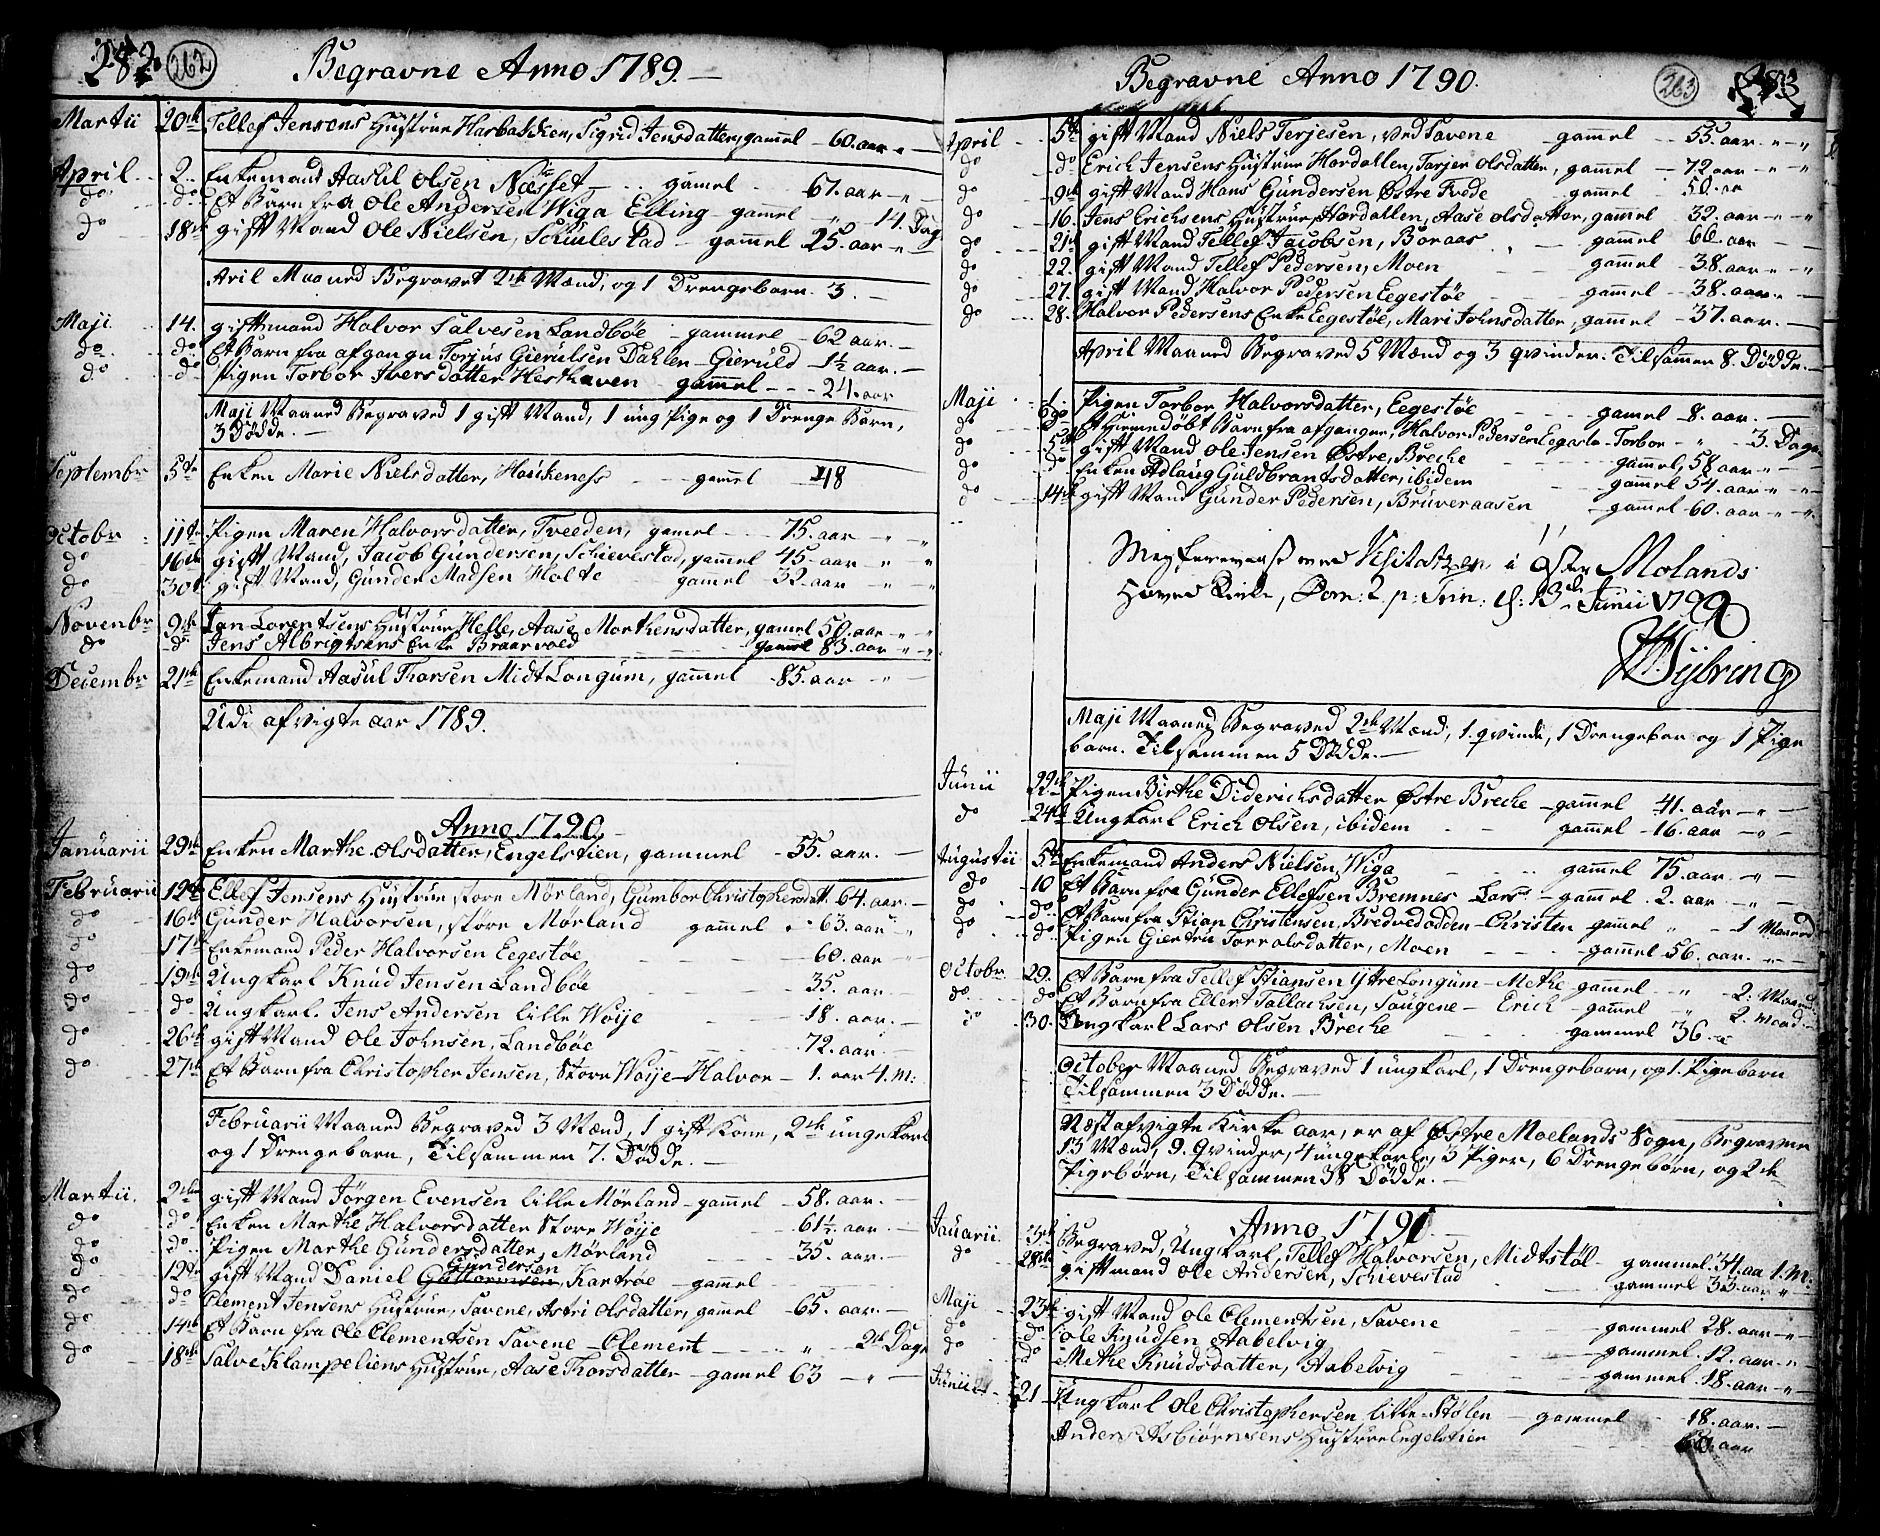 282. 262 Begravne Anno 1789.
Martii 20de Tellef Jensens Hustrue Harbakken, Sigrid Jensdatter, gammel - 60. aar
April 2. Enkemand Aasul Olsen Næsset gamel - 67. aar
do do Et Barn fra Ole Andersen Wiga Elling - gammel " 14. Dag
do 18de gift Mand Ole Nielsen, Schulestad - gammel 25. aar
Aril Maaned Begravet 2de Mænd, og 1 Drengebarn. 3.
Maji 14. giftmand Halvor Salvesen Landbøe gammel - 62 aar.
do do Et Barn fra afgangn Torjus Gierulsen Dahlen - Gieruld - 1½ aar.
do do Pigen Torbor Iversdatter Hesthaven gammel - 24. aar
Maji Maaned Begraved 1 gift Mand, 1 ung Pige og 1 Drenge Barn,
3 Dødde.
Septembr 5te Enken Marie Nielsdatter, Houkeness gamel 48
Octobr 11te Pigen Maren Halvorsdatter, Tveeden, gamel 75. aar
do 16de gift Mand, Jacob Gundersen, Schievestad, gammel 45. aar
do 30t gift Mand, Gunder Madsen Holte gamel 32. aar
Novenbr 9de Jan Lorentsens Hustrue Helle, Aase Morthensdatter, gamel 50. aar
do do Jens Albrigtsens Enke Braarvold gamel 83. aar
Decembr 21de Enkemand Aasul Thorsen Midt Longum, gammel - 85. aar
Udi afvigte aar 1789.
Anno 1790
Januarii 29de Enken Marthe Olsdatter, Engelstien, gammel - 55. aar.
Februarii 12te Ellef Jensens Hustrue store Mørland, Gumbor Christophersdatt. 64. aar.
do 16de Gunder Halvorsen, støre Mørland gammel 63. aar
do 17de Enkemand Peder Halvorsen Eegestøe 60. aar
do 19de Ungkarl Knud Jensen Landbøe 35. aar
do do Ungkarl. Jens Andersen lille Woije 18. aar.
do 26de gift Mand Ole Johnsen, Landbøe 72. aar
do 27de Et Barn fra Christopher Jensen, Store Woije - Halvor - 1. aar 4. M:
Februarii Maaned Begraved 3 Mænd, 1 gift Kone, 2de ungekarl
og 1 Drengebarn, Tilsammen 7. Dødde.
Martii. 2den gift Mand Jørgen Evensen lille Mørland - gammel - 58. aar.
do do Enken Marthe Halvorsdatter Store Woije 61½. aar.
do do Pigen Marthe Gundersdatter, Mørland 35. aar.
Gundersen
do 12te gift Mand Daniel Guttormsen, Kantrøe - gammel
do do Clement Jensens Hustrue, Savene, Astri Olsdatter, gammel - 65. aar.
do 14de Et Barn fra Ole Clementsen Savene - Clement " 2de Dage
do 18de Salve Klampeliens Hustrue, Aase Thorsdatter - gamel 63
Begravne Anno 1790. 263 283
April 5te gift Mand Niels Terjesen, ved Savene gammel 55. aar
do do Erich Jensens Hustrue Hordallen, Torjer Olsdatter, gammel 72. aar
do 9de gift Mand Hans Gundersen Østre Frede gammel 50. ar
do 16. Jens Erichsens Hustrue, Hordallen, Aase Olsdatter, gammel 32. aar
do 21de gift Mand Tellef Jacobsen, Boraas gammel 66. aar
do 22. gift Mand Tellef Pedersen, Moen gammel 38. aar
do 27. gift Mand, Halvor Pedersen Eegestøe gammel - 38. aar
do 28. Halvor Pedersens Enke Eegestøe, Mari Johnsdatter, gammel - 37. aar.
April Maaned Begraved 5 Mænd og 3 qvinder. Tilsamen 8. Dødde.
Maji 1. Pigen Torbor Halvorsdatter, Eegestøe gamel 8. aar.
do do Et Hiemedøbt Barn fra afgangen, Halvor Pedersen Eegestø - Torbor " 3. Dage
do 5te gift Mand Ole Jensen Østre, Breche gammel, 58 aar
do do Enken Adlaug Guldbrantsdatter, ibidem gammel 54. aar
do 14de gift Mand Gunder Pedersen, Bruveraasen gammel - 60. aar
Visitatzen i Øster Molands
Hoved Kirke, Dom: 2. p: Trin: d: 13de Junii 1790
Maji Maaned Begraved 2de Mænd, 1. qvinde, 1 Drengebar og 1 Pige
barn. Tilsammen 5 Dødde.
Junii 22de Pigen Birthe Diderichsdatter Østre Breche - gammel 41. aar
do 24de Ungkarl Erich Olsen, ibidem gammel - 16. aar
Augustii 5te Enkemand Anders Nielsen, Wiga gammel 75. aar
do 10 Et Barn fra Gunder Ellefsen Bremnes Lars - gammel 2. aar
do do Et Barn fra Stian Christensen, Bredvedodden - Christen gammel " 1 Maaned
do do Pigen Giertru Torralsdatter, Moen gammel 56. aar.
Octobr 29. Et Barn fra Tellef Stiansen Yttre Longum - Methe gammel " 2. Maand
do do Et Barn fra Ellert Tallachsen, Saugene - Erich gammel " 2. Maand
do 30. Ungkarl Lars Olsen Breche gammel 36.
October Maaned Begraved 1 ungkarl, 1 Drengebarn, og 1. Pigebarn
Tilsammen 3 Dødde.
Næstafvigte Kirke aar, er af Østre Moelands Sogn, Begraven
13 Mænd, 9. Qvinder, 4 ungekarle, 3 Piger, 6 Drengebørn, og 2de
Pigebørn, Tilsammen 38 Dødde.
Anno 1791
Januarii 3de Begraved, Ungkarl, Tellef Halvorsen, Midtstøl gammel. 34. aa 1. M:
do 28de giftmand Ole Andersen, Schievestad gammel 33. aar
Maji 23de gift Mand Ole Clementsen, Savene gammel 28. aar
do do Ole Knudsen Aabelvig gammel. 12. aar
do do Methe Knudsdatter, Aabelvig gammel. 18. aar
Junii 21 Ungkarl Ole Christophersen, lille Stølen gammel 18. aar.
Anders Asbiørnsens Hustrue Engelstien 60. aar